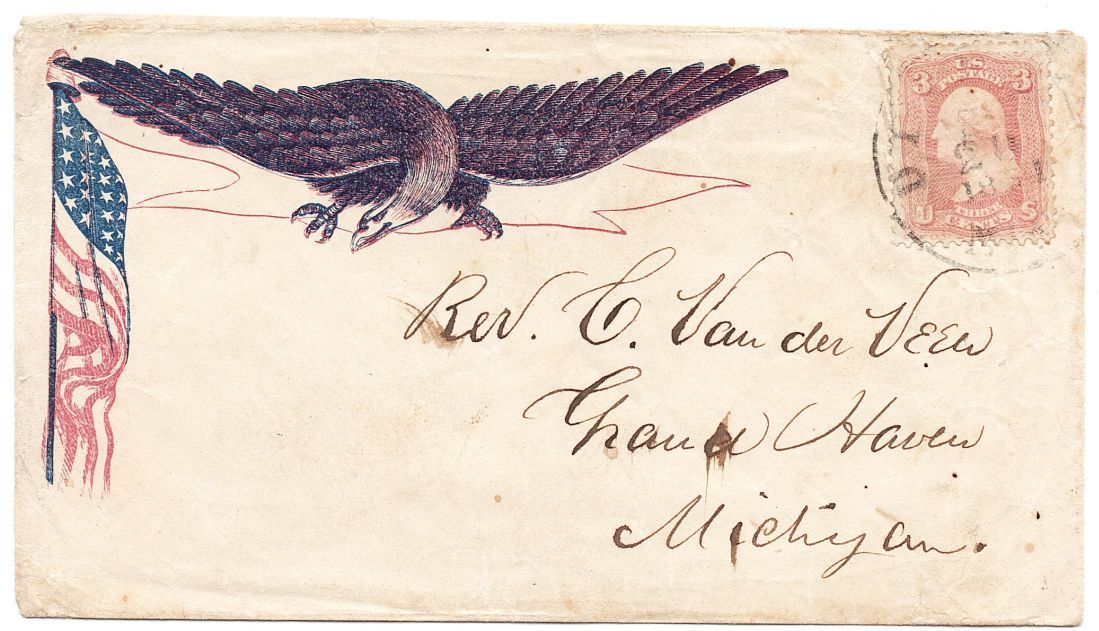 3 U.S. 3
POSTAGE
U THREE S
CENTS
Rev. C. Van der Veen
Grand Haven
Michigan.